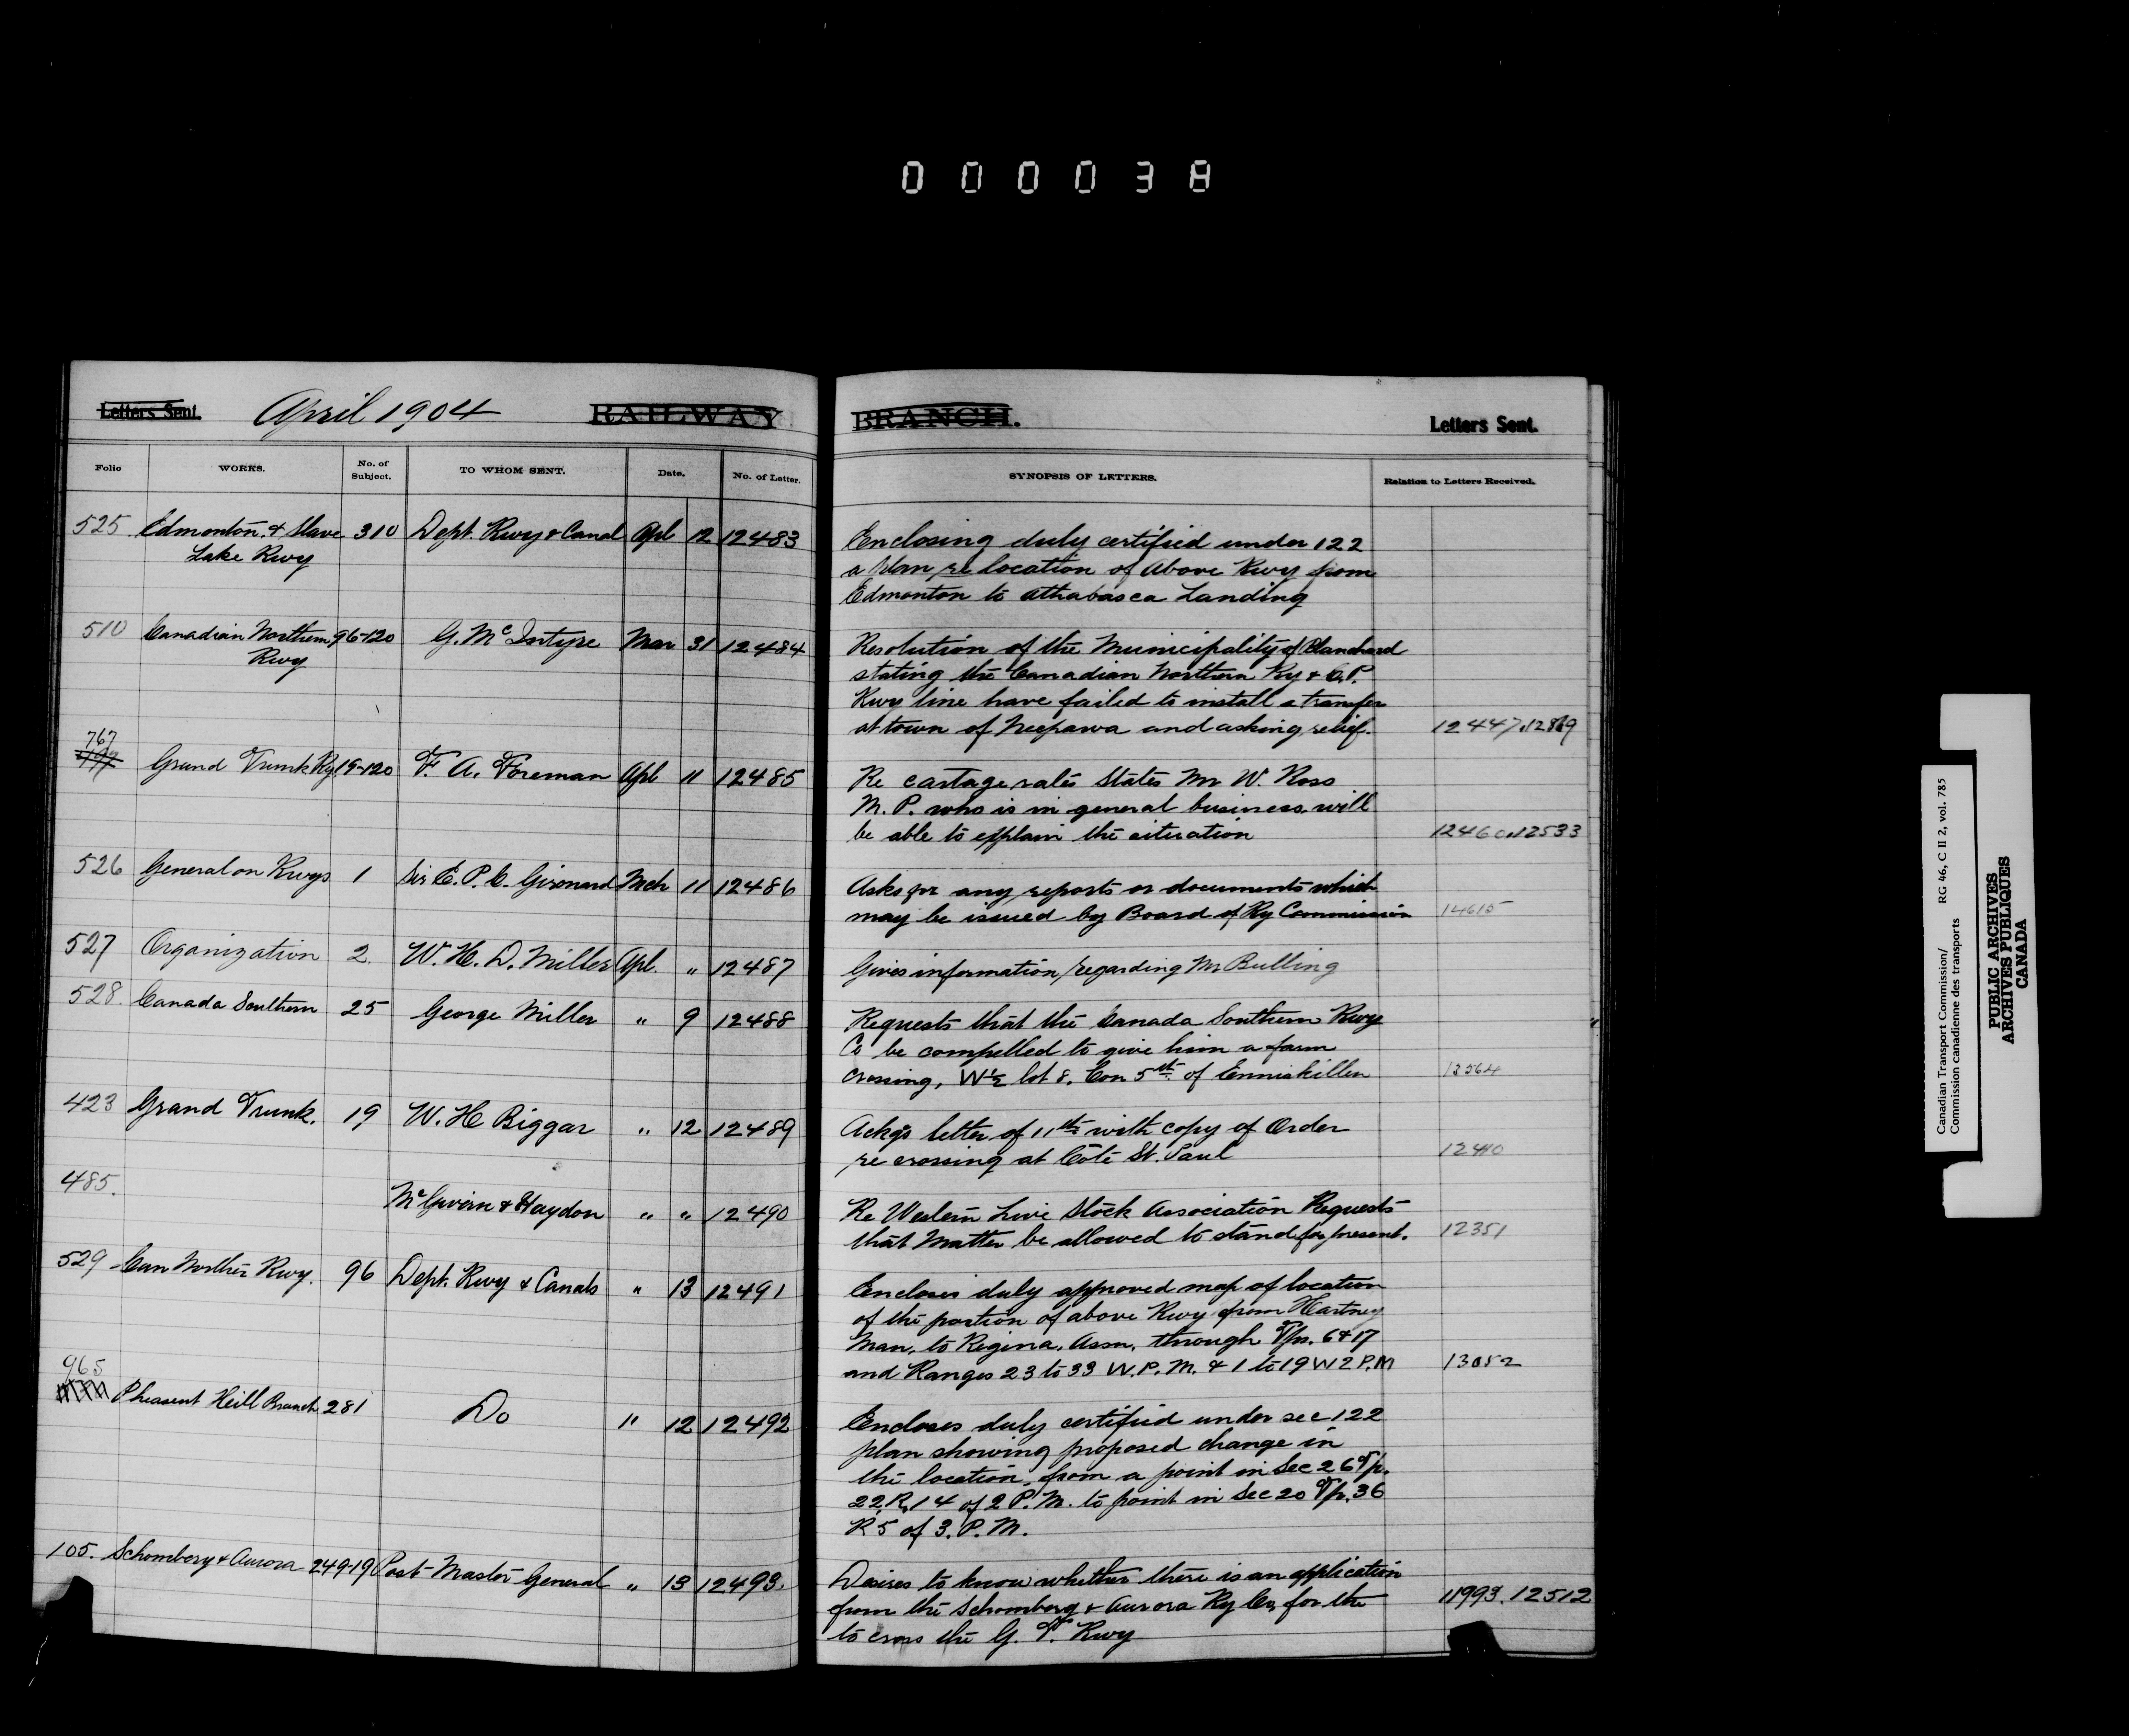 000038
Letters Sent. April 1904 RAILWAY BRANCH. Letters Sent.
Folio WORKS. No. of Subject. TO WHOM SENT. Date. No. of Letter. SYNOPSIS OF LETTERS. Relation to Letters Received.
525. Edmonton & Slave 310 Dept. Rwy & Canal Apl 12 12483 Enclosing duly certified under 122
Lake Rwy a plan re location of above Rwy from
Edmonton to Athabasca Landing
510 Canadian Northern 96-120 G. McIntyre Mar 31 12484 Resolution of the Municipality of Blanchard
Rwy stating the Canadian Northern Ry & C.P.
Rwy line have failed to install a transfer
at town of Neepawa and asking relief. 12447.
767 Grand Trunk Ry 19-120 F. A. Foreman Apl 11 12485 Re cartage rates States Mr W. Ross
M. P. who is in general business will
be able to explain the situation 12460.12533
526 General on Rwys 1 Sir E. P. C. Girouard Mch 11 12486 Asks for any reports or documents which
may be issued by Board of Ry Commission 14615
527 Organization 2. W. H. D. Miller Apl. " 12487 Gives information regarding Mr Bulling
528. Canada Southern 25 George Miller " 9 12488 Requests that the Canada Southern Rwy
Co be compelled to give him a farm
crossing, W½ lot 8, Con 5th of Enniskillen 13564
423 Grand Trunk. 19 W. H Biggar " 12 12489 Ackgs letter of 11th with copy of Order
re crossing at Côte St. Paul 12410
485. McGivern & Haydon " " 12490 Re Western Live Stock Association Requests
that Matter be allowed to stand for present. 12351
529 Can Northern Rwy. 96 Dept. Rwy & Canals " 13 12491 Encloses duly approved map of location
of the portion of above Rwy from Hartney
Man, to Regina, Assn, through Tps. 6 & 17
and Ranges 23 to 33 W.P.M. & 1 to 19 W 2 P.M 13052
965 Pheasent Heill Branch 281 Do " 12 12492 Encloses duly certified under sec 122
plan showing proposed change in
the location, from a point in Sec 26 Tp.
22, R, 14 of 2 P. M. to point in Sec 20 Tp. 36
R 5 of 3. P. M.
105. Schomberg & Aurora 249-19 Post-Master General " 13 12493. Desires to know whether there is an application
from the Schomberg & Aurora Ry Co, for the 11993.12512
to cross the G. T. Rwy
Canadian Transport Commission/ RG 46, C II 2, vol. 785
Commission canadienne des transports
PUBLIC ARCHIVES
ARCHIVES PUBLIQUES
CANADA